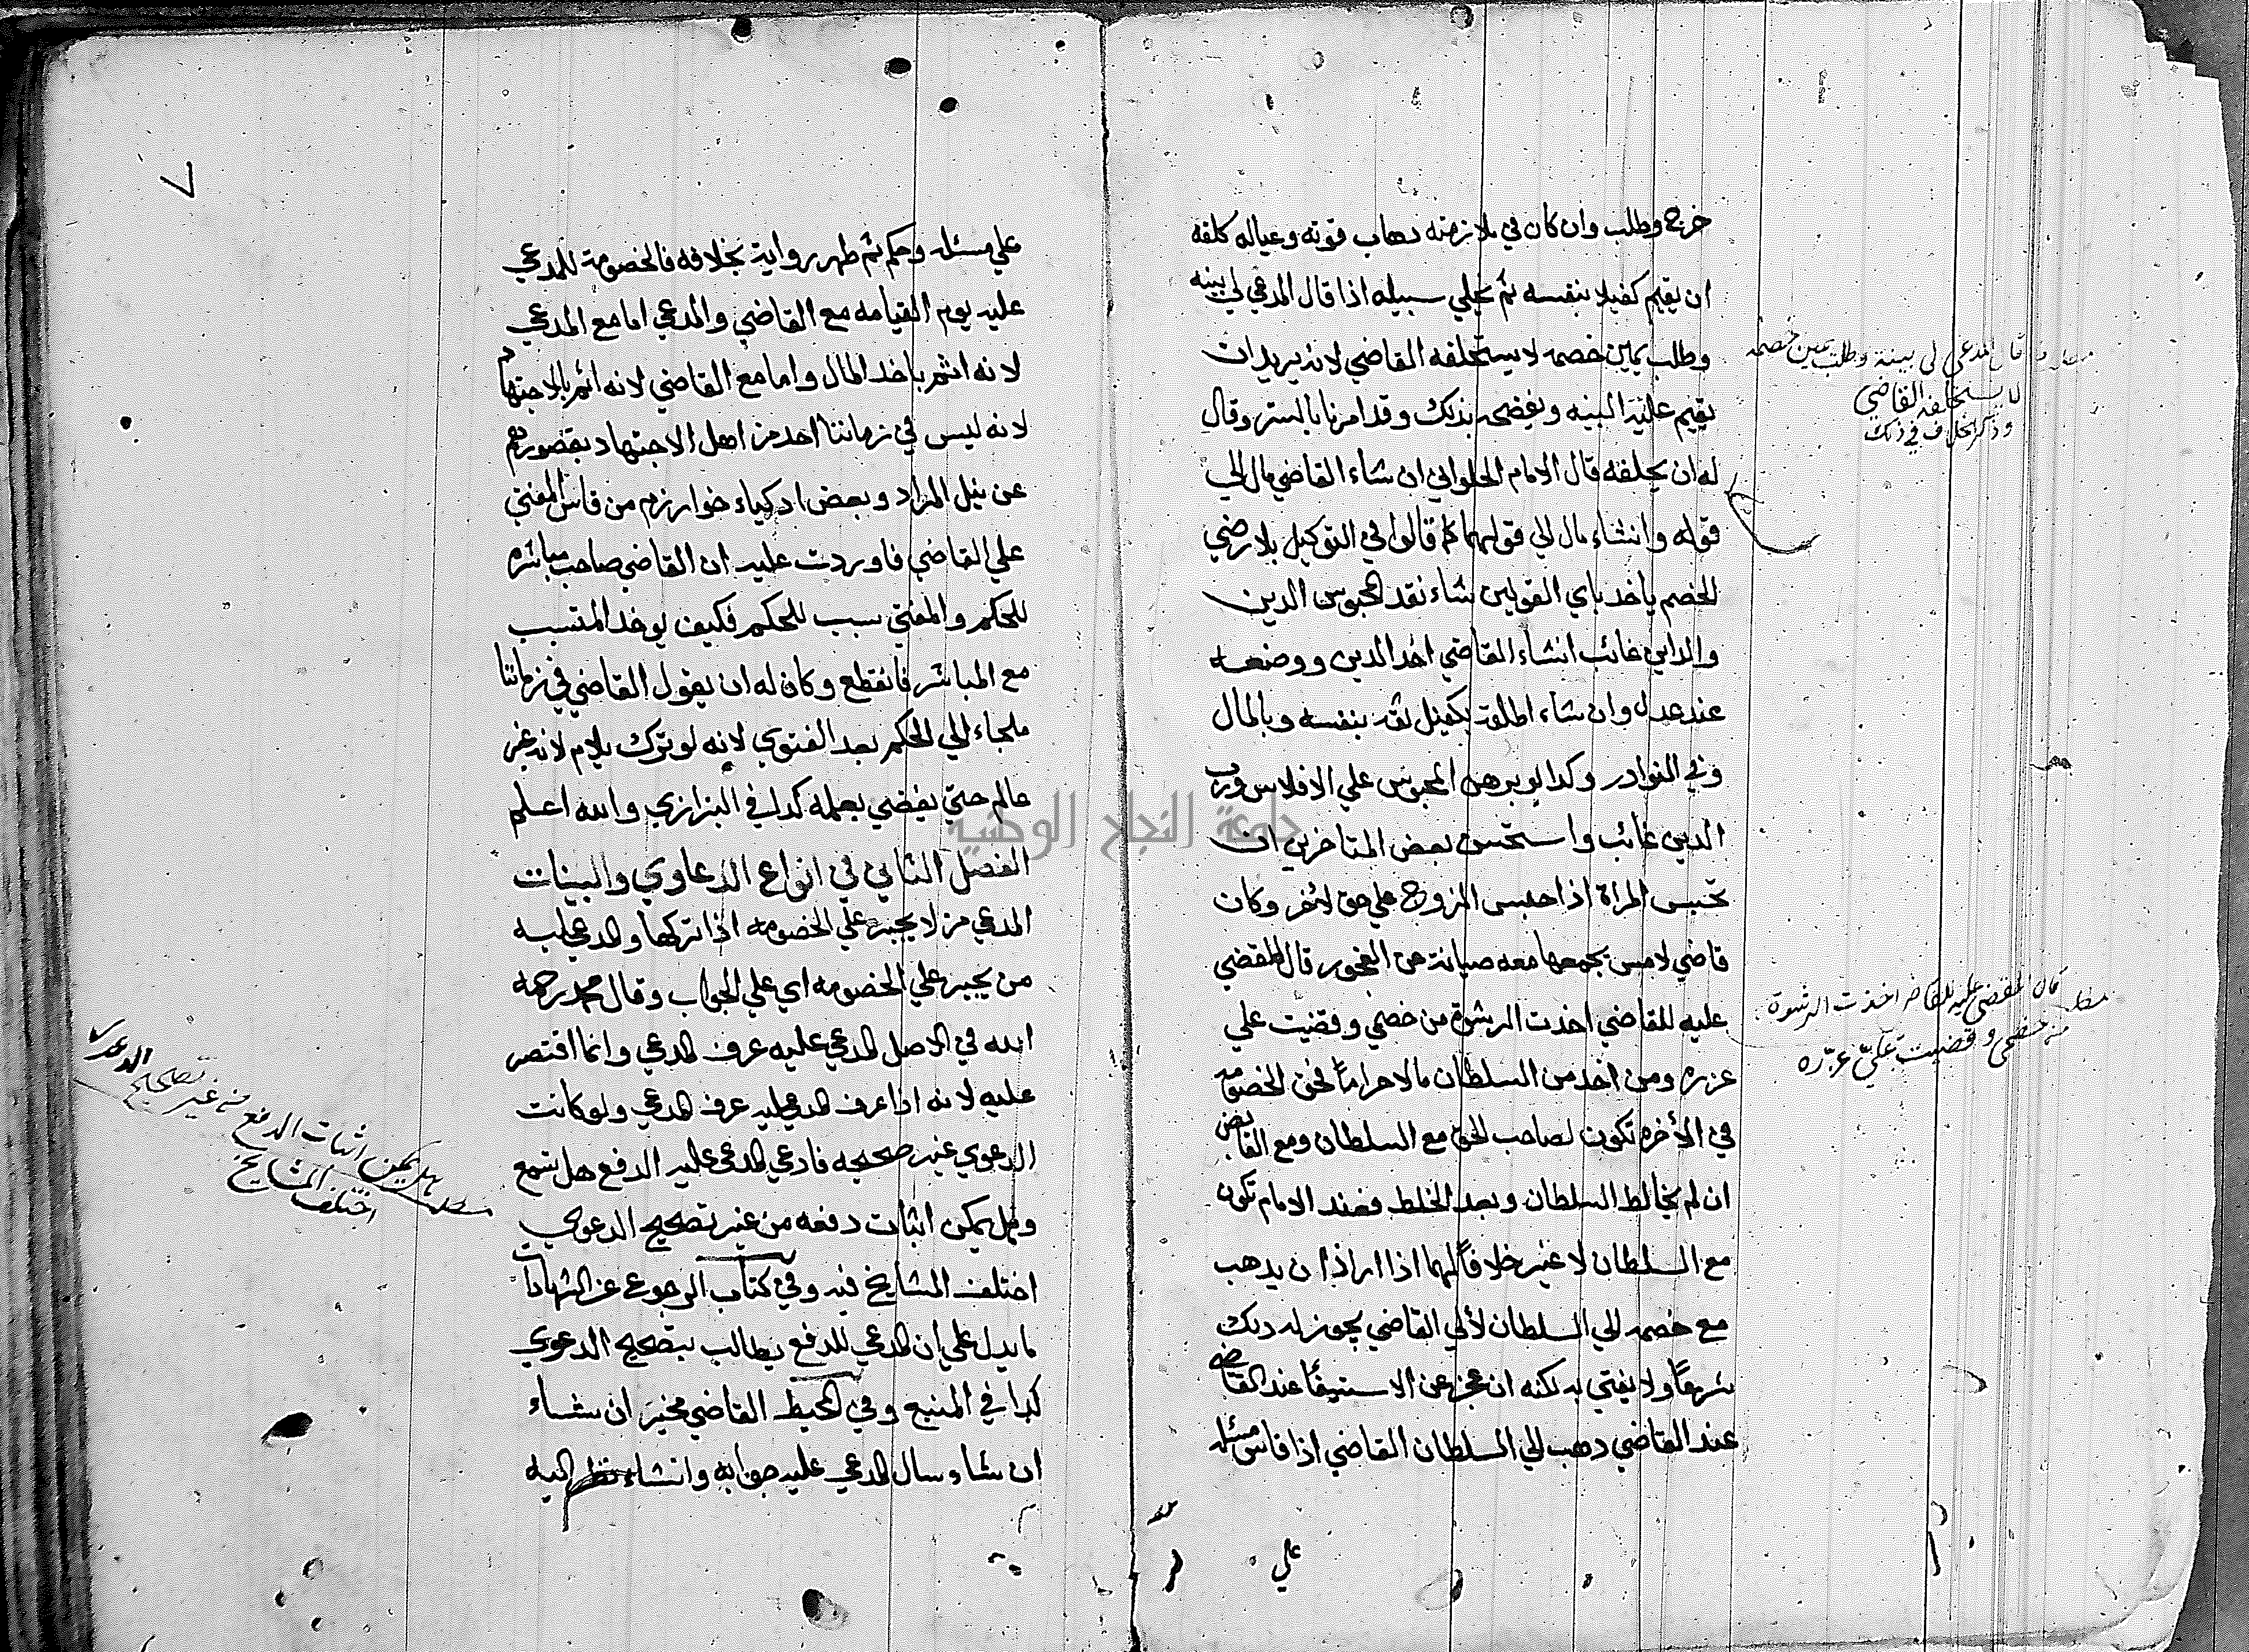 خرج وطلب وان كان في ملازمته دهاب قوته وعياله كلفه
ان يقيم كفيلا بنفسه ثم يخلي سبيله اذا قال المدعي لي بينه
وطلب يمين خصمه لا يستحلفه القاضي لانه يريد ان
يقيم عليه البينه ويفضحه بذلك وقد امرنا بالستر وقال
له ان يحلفه قال الامام الحلواني ان شاء القاضي مال الي
قوله وانشاء مال الي قولهما كما قالوا في التوكيل بلا رضي
الخصم ياخد باي القولين شاء نقد المحبوس الدين
والداين غائب انشاء القاضي اخد الدين ووضعه
عند عدل وان شاء اطلقه بكفيل ثقه بنفسه وبالمال
وفي النوادر وكدا لو برهن المحبوس علي الافلاس ورب
الدين غائب واستحسن بعض المتاخرين ان
تحبس المراة اذا حبس الزوج علي حق لنفر وكان
قاضي لامس يجمعها معه صيانة عن الفجور قال المقضي
عليه للقاضي اخدت الرشوة من خصمي وقضيت علي
عزره ومن اخد من السلطان مالا حراما فحق الخصومه
في الأخره تكون لصاحب الحق مع السلطان ومع القابض
ان لم يخالط السلطان وبعد الخلط فعند الامام تكون
مع السلطان لا غير خلافاً لهما اذا اراد ان يدهب
مع خصمه الي السلطان لا الي القاضي يجوز له دلك
شرعاً ولا يفتي به لكنه ان عجز عن الاستيفا عند القاضي
عند القاضي دهب الي السلطان القاضي اذا قاس مسئله
علي
قال المدعي لي بينة وطلب يمين خصمه
لا يستحلفه القاضي
وذكر الخلاف في ذلك
مطلب قال المقضي عليه للقاضي اخذت الرشوة
من خصمي وقضيت عليّ عزّره
٧
علي مسئله وحكم ثم ظهر رواية بخلافه فالخصومة للمدعي
عليه يوم القيامه مع القاضي والمدعي اما مع المدعي
لانه اثم باخد المال واما مع القاضي لانه اثم بالاجتهاد
لانه ليس في زماننا احد من اهل الاجتهاد بقصورهم
عن نيل المراد وبعض ادكياء خوارزم من قاس المفتي
علي القاضي فاوردت عليه ان القاضي صاحب مباشره
للحكم والمفتي سبب للحكم فكيف يوخد المتسبب
مع المباشر فانقطع وكان له ان يقول القاضي في زماننا
ملجاء الي الحكم بعد الفتوي لانه لو ترك يلام لانه غير
عالم حتي يقضي بعلمه كدا في البزازي والله اعلم
الفصل الثاني في انواع الدعاوي والبينات
المدعي من لا يجبر علي الخصومه اذا تركها والمدعي عليه
من يجبر علي الخصومه اي علي الجواب وقال محمد رحمه
الله في الاصل المدعي عليه عرف المدعي وانما اقتصر
عليه لانه اذا عرف المدعي عليه عرف المدعي ولو كانت
الدعوي غير صحيحه فادعي المدعي عليه الدفع هل تسمع
وهل يمكن اثبات دفعه من غير تصحيح الدعوي
اختلف المشايخ فيه وفي كتاب الرجوع عن الشهادات
ما يدل علي ان المدعي للدفع يطالب بتصحيح الدعوي
كدا في المنبع وفي المحيط القاضي مخير ان شاء
ان شاء سال المدعي عليه جوابه وانشاء نظر اليه
مطلب هل يمكن اثبات الدفع من غير تصحيح الدعوى
اختلف المشايخ
جامعة النجاح الوطنية